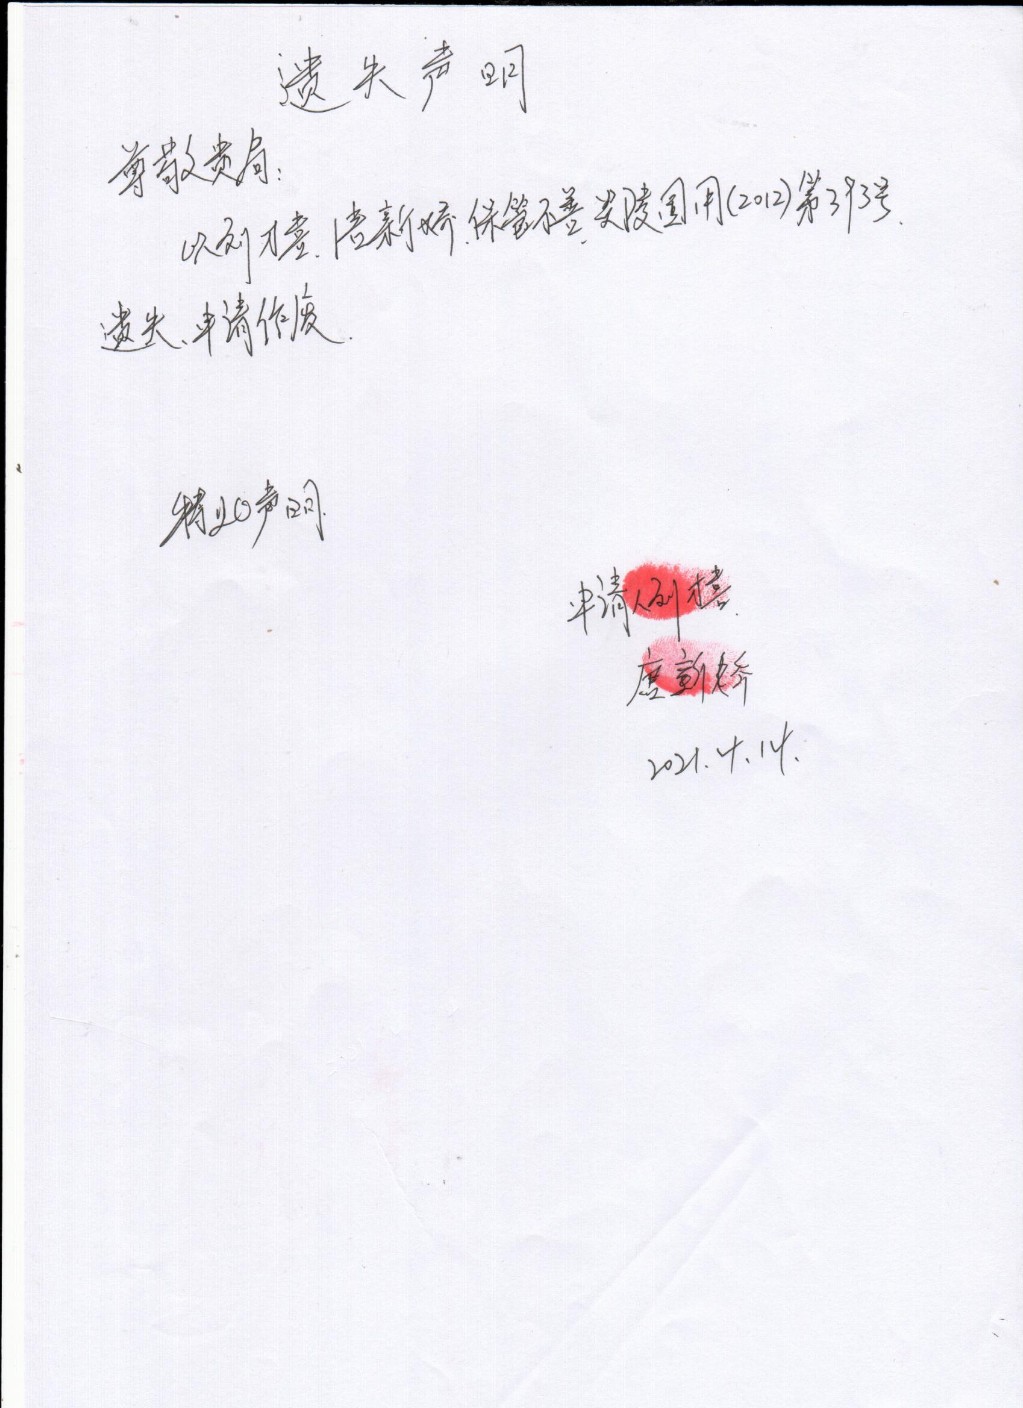 遗失声明
尊敬贵局:
以刘才喜、唐新娇、保管不善、炎陵国用(2012)第393号、
遗失、申请作废.
特此声明.
申请人刘才喜.
唐新娇
2021.4.14.